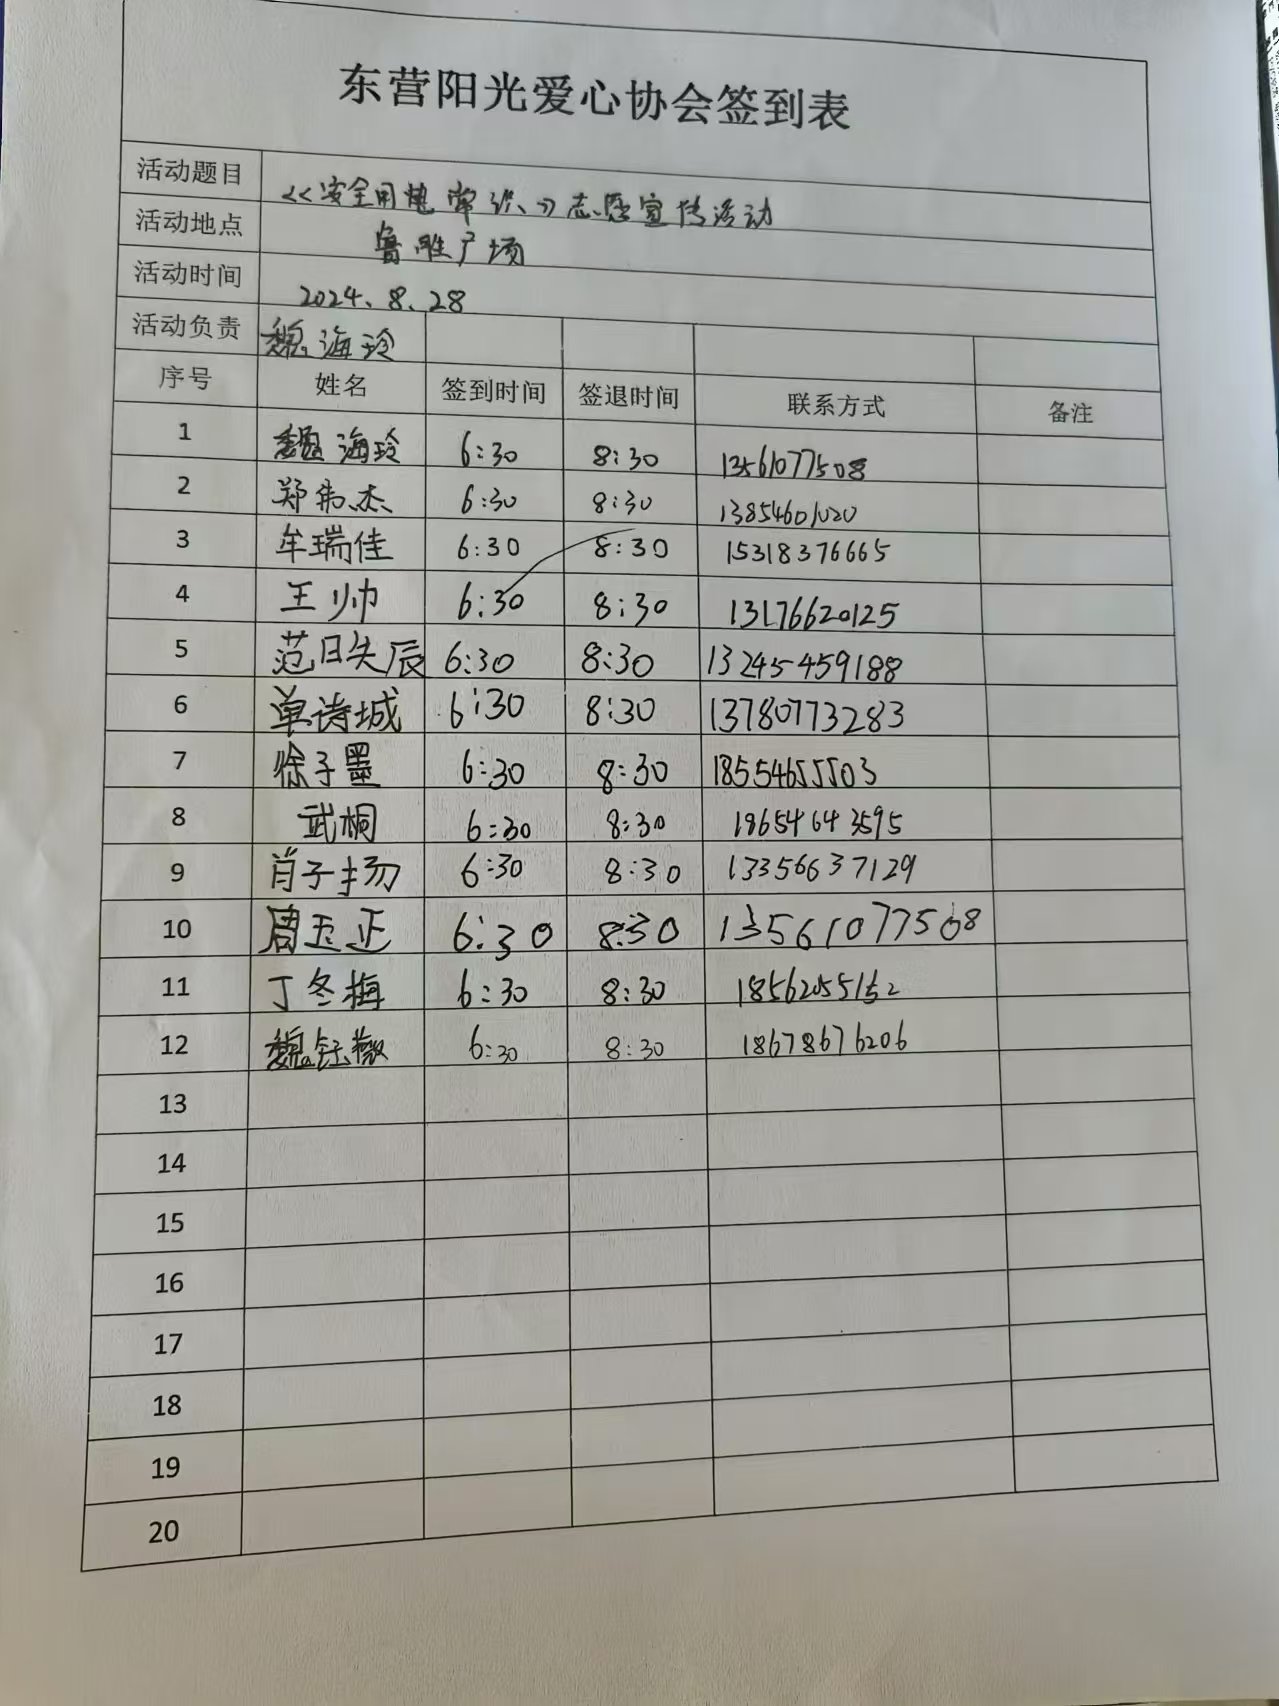 东营阳光爱心协会签到表
活动题目 <<安全用电常识>>志愿宣传活动
活动地点 鲁胜广场
活动时间 2024、8、28
活动负责 魏海玲
序号 姓名 签到时间 签退时间 联系方式 备注
1 魏海玲 6:30 8:30 13561077508
2 郑韦杰 6:30 8:30 13854601020
3 牟瑞佳 6:30 8:30 15318376665
4 王帅 6:30 8:30 13176620125
5 范日失辰 6:30 8:30 13245459188
6 单诗城 6:30 8:30 13780773283
7 徐子墨 6:30 8:30 18554655503
8 武桐 6:30 8:30 18654643595
9 肖子扬 6:30 8:30 13356637129
10 周玉正 6:30 8:30 13561077508
11 丁冬梅 6:30 8:30 18562055152
12 魏钰薇 6:30 8:30 18678676206
13
14
15
16
17
18
19
20